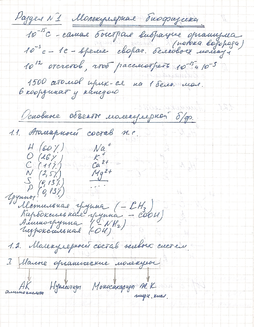 Раздел №1 Молекулярная биофизика
10⁻¹⁵ С - самая быстрая вибрация организма
(полоса водорода)
10⁻³ с - 1с - время сворач. белковой молекулы
10¹² отсчетов, чтоб рассмотреть 10⁻¹⁵ и 10⁻³
1500 атомов на 1 бел. мол.
6 координат у каждого
Основные объекты молекулярной б/ф.
1.1. Атомарный состав ж.с.
H (60%) Na⁺
O (26%) K⁺
C (11%) Ca²⁺
N (2,5%) Mg²⁺
S (0,13%) ...
P (0,13%)
Группы
Метильная группа (-CH₃)
Карбоксильная группа -COOH)
Аминогруппа (-NH₂)
Гидроксильная (-OH)
1.2. Молекулярный состав живых систем
Малые органические молекулы
АК Нуклеотиды Моносахариды Ж.К.